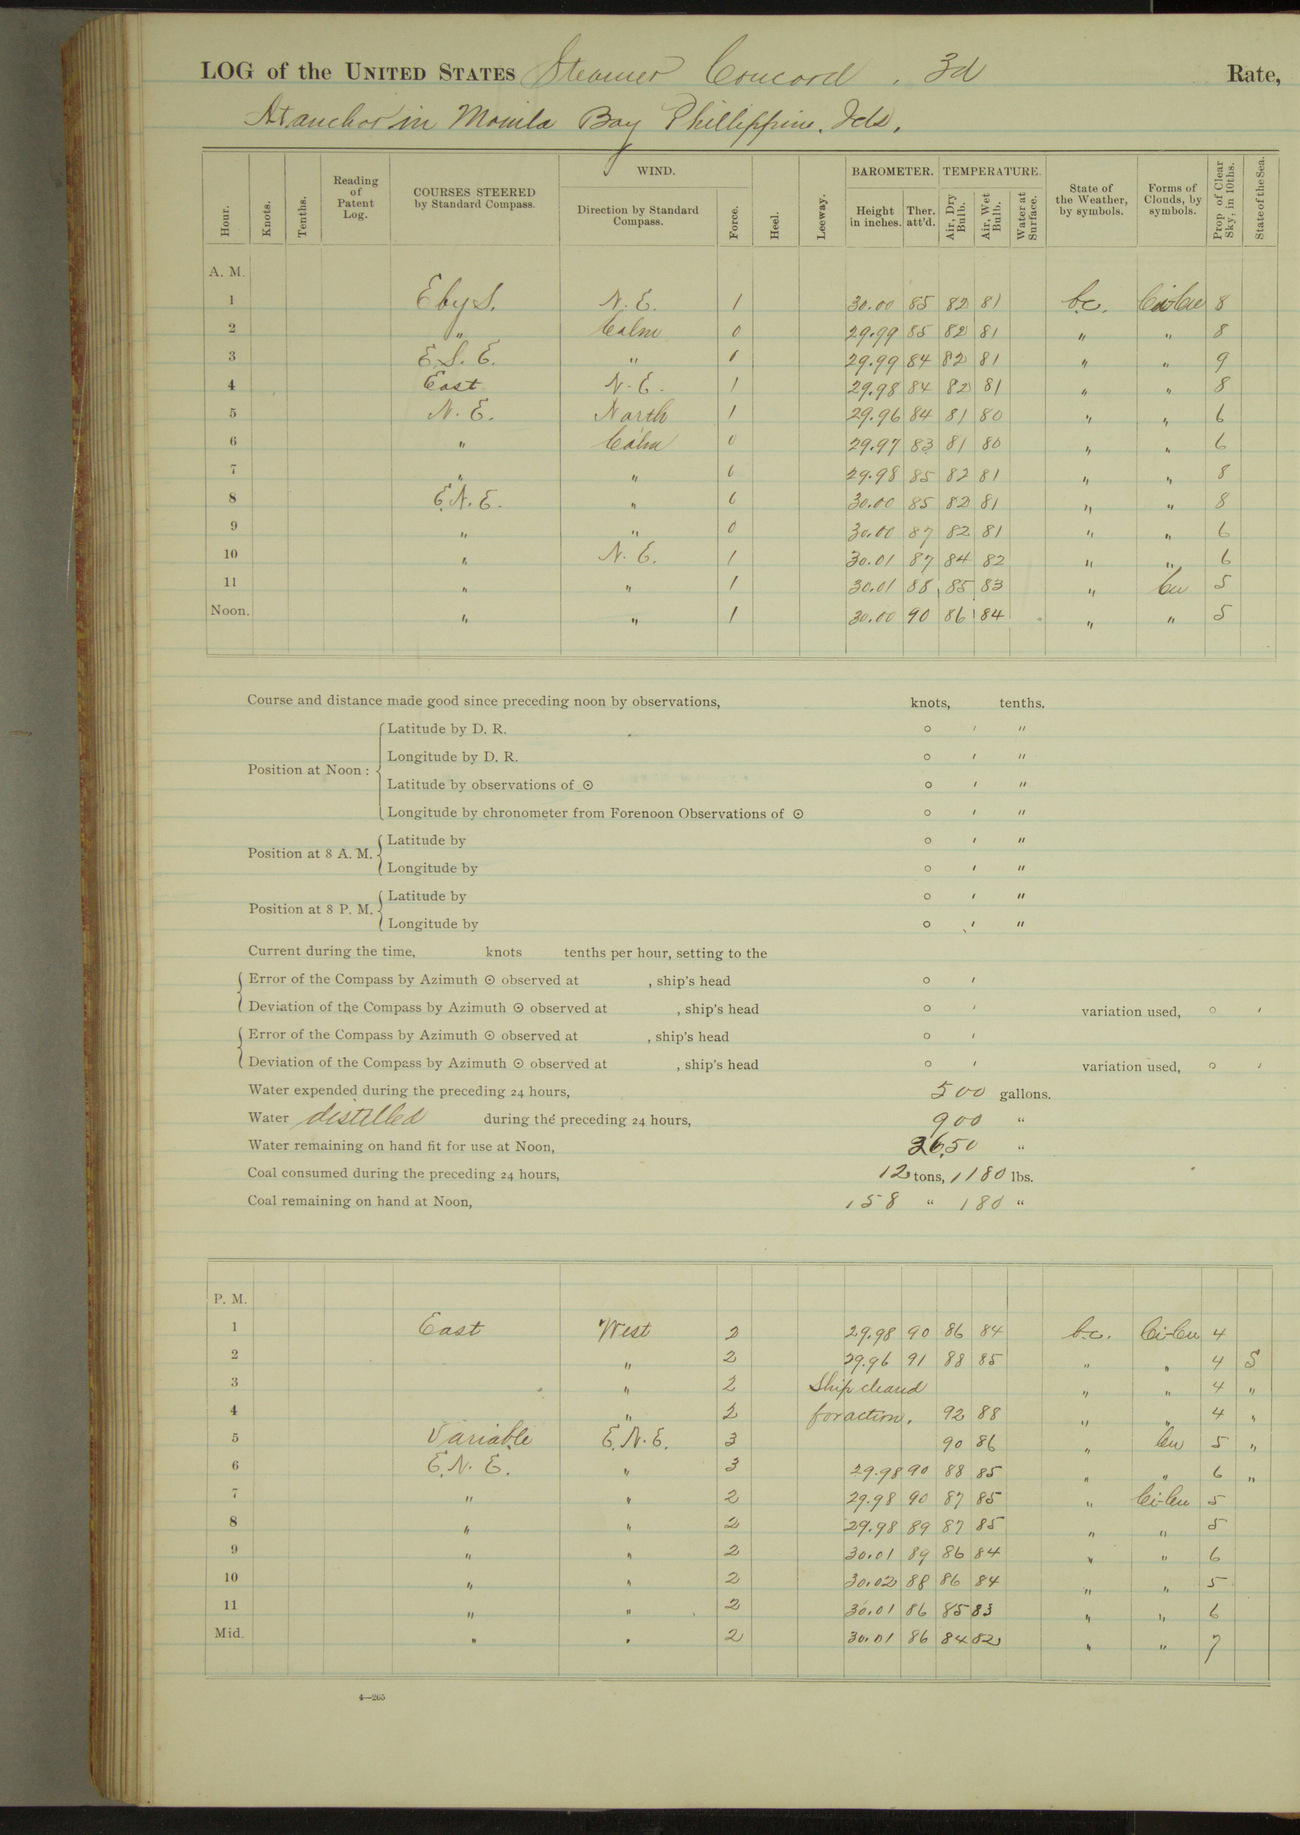 LOG of the UNITED STATES Steamer Concord, 3d Rate,
At anchor in Manila Bay Phillippine. Ids.
Hour. Knots. Tenths. Reading of Patent Log. COURSES STEERED by Standard Compass. WIND. Direction by Standard Compass. Force. Heel. Leeway. BAROMETER. Height in inches. Ther. att'd. TEMPERATURE. Air, Dry Bulb. Air, Wet Bulb. Water at Surface. State of the Weather, by symbols. Forms of Clouds, by symbols. Prop. of Clear Sky, in 10ths. State of the Sea.
A. M.
1 E by S. N. E. 1 30.00 85 82 81 b.c. Ci-Cu 8
2 " Calm 0 29.99 85 82 81 " " 8
3 E. S. E. " 0 29.99 84 82 81 " " 9
4 East N. E. 1 29.98 84 82 81 " " 8
5 N. E. North 1 29.96 84 81 80 " " 6
6 " Calm 0 29.97 83 81 80 " " 6
7 " " 0 29.98 85 82 81 " " 8
8 E. N. E. " 0 30.00 85 82 81 " " 8
9 " " 0 30.00 87 82 81 " " 6
10 " N. E. 1 30.01 87 84 82 " " 6
11 " " 1 30.01 88 85 83 " Cu 5
Noon. " " 1 30.00 90 86 84 " " 5
Course and distance made good since preceding noon by observations, knots, tenths.
Position at Noon: Latitude by D. R. ° ′ ″
Longitude by D. R. ° ′ ″
Latitude by observations of ☉ ° ′ ″
Longitude by chronometer from Forenoon Observations of ☉ ° ′ ″
Position at 8 A. M. Latitude by ° ′ ″
Longitude by ° ′ ″
Position at 8 P. M. Latitude by ° ′ ″
Longitude by ° ′ ″
Current during the time, knots tenths per hour, setting to the
Error of the Compass by Azimuth ☉ observed at , ship's head ° ′
Deviation of the Compass by Azimuth ☉ observed at , ship's head ° ′ variation used, ° ′
Error of the Compass by Azimuth ☉ observed at , ship's head ° ′
Deviation of the Compass by Azimuth ☉ observed at , ship's head ° ′ variation used, ° ′
Water expended during the preceding 24 hours, 500 gallons.
Water distilled during the preceding 24 hours, 900 "
Water remaining on hand fit for use at Noon, 3650 "
Coal consumed during the preceding 24 hours, 12 tons, 1180 lbs.
Coal remaining on hand at Noon, 158 " 180 "
P. M.
1 East West 2 29.98 90 86 84 b.c. Ci-Cu 4
2 " 2 29.96 91 88 85 " " 4 S
3 " 2 Ship cleard " " 4 "
4 " 2 for action. 92 88 " " 4 "
5 Variable E. N. E. 3 90 86 " Cu 5 "
6 E. N. E. " 3 29.98 90 88 85 " " 6 "
7 " " 2 29.98 90 87 85 " Ci-Cu 5
8 " " 2 29.98 89 87 85 " " 5
9 " " 2 30.01 89 86 84 " " 6
10 " " 2 30.02 88 86 84 " " 5
11 " " 2 30.01 86 85 83 " " 6
Mid. " " 2 30.01 86 84 82 " " 7
4—265